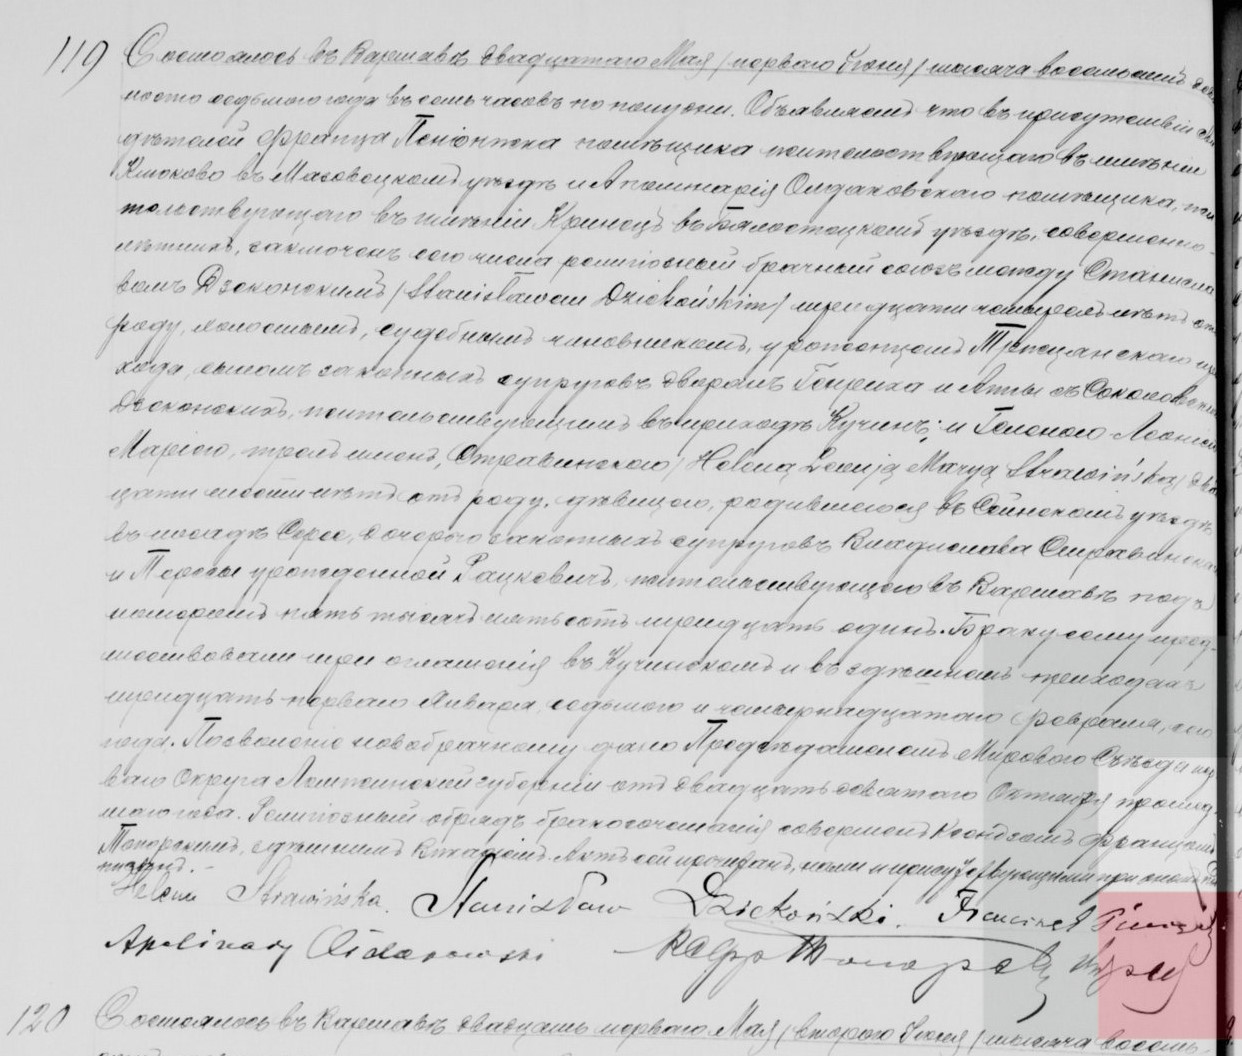 119 Состоялось въ Варшавѣ двадцатаго Мая /перваго Іюня/ тысяча восемьсотъ девя
носто седьмого года въ семь часовъ по полудни. Объявляемъ что въ присутствіи сви
дѣтелей Франца Пенionтка помѣщика жительствующаго въ имѣніи
въ Мазовецкомъ уѣздѣ и Аполинарія Олдаковскаго помѣщика, жи
тельствующаго въ имѣніи въ Бѣлостоцкомъ уѣздѣ, совершенно-
лѣтнихъ, заключенъ сего числа религіозный брачный союзъ между Станисла
вомъ Дзеконскимъ /Stanisławem Dziekońskim/ тридцати четырехъ лѣтъ отъ
роду, холостымъ, судебнымъ чиновникомъ, уроженцемъ при
хода, сыномъ законныхъ супруговъ дворянъ Генриха и Анны съ Соколовскихъ
Дзеконскихъ, жительствующимъ въ приходѣ Кучинъ; и Геленою
Маріею, трехъ именъ, Стравинскою /Helena Marya Strawińska/ два
цати шести лѣтъ отъ роду, дѣвицею, родившеюся въ Сейнскомъ уѣздѣ
въ посадѣ Сереe, дочерью законныхъ супруговъ Владислава Стравинскаго
и Терезы урожденной Рацкевичъ, жительствующею въ Варшавѣ подъ
номеромъ пять тысячъ пятьсотъ тридцать одинъ. Браку сему пред-
шествовали три оглашенія въ Кучинскомъ и въ здѣшнемъ приходахъ
тридцать перваго Января, седьмого и четырнадцатаго Февраля, сего
года. Позволеніе новобрачному дано Предсѣдателемъ Мирового Съѣзда пер
ваго Округа Ломжинской губерніи отъ двадцать девятаго Октября прошед
шаго года. Религіозный обрядъ бракосочетанія совершенъ Ксендзомъ Францомъ
Топорскимъ, здѣшнимъ Викаріемъ. Актъ сей прочитанъ, нами и присутствующими при ономъ
подписанъ.-
Helena Strawińska. Stanisław Dziekoński. Franciszek
Apolinary Ołdakowski
120 Состоялось въ Варшавѣ двадцать перваго Мая /второго Іюня/ тысяча восемь-